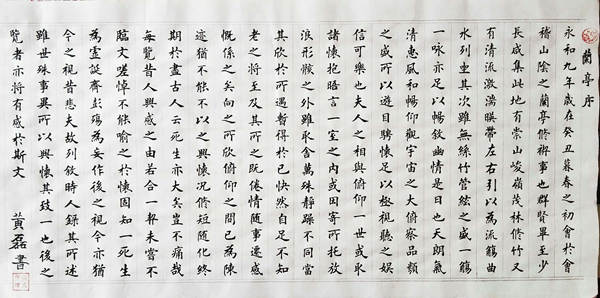 蘭亭序
永和九年歲在癸丑暮春之初會於會
稽山陰之蘭亭脩稧事也群賢畢至少
長咸集此地有崇山峻嶺茂林脩竹又
有清流激湍暎帶左右引以為流觴曲
水列坐其次雖無絲竹管絃之盛一觴
一詠亦足以暢敘幽情是日也天朗氣
清惠風和暢仰觀宇宙之大俯察品類
之盛所以遊目騁懷足以極視聽之娛
信可樂也夫人之相與俯仰一世或取
諸懷抱晤言一室之內或因寄所托放
浪形骸之外雖取舍萬殊靜躁不同當
其欣於所遇暫得於己快然自足不知
老之將至及其所之既倦情隨事遷感
慨係之矣向之所欣俯仰之間已為陳
迹猶不能不以之興懷況脩短隨化終
期於盡古人云死生亦大矣豈不痛哉
每覽昔人興感之由若合一契未嘗不
臨文嗟悼不能喻之於懷固知一死生
為虛誕齊彭殤為妄作後之視今亦猶
今之視昔悲夫故列敘時人錄其所述
雖世殊事異所以興懷其致一也後之
覽者亦將有感於斯文
黃磊書